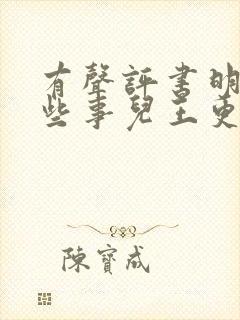 有聲評書明
些事兒王更
陳寶成